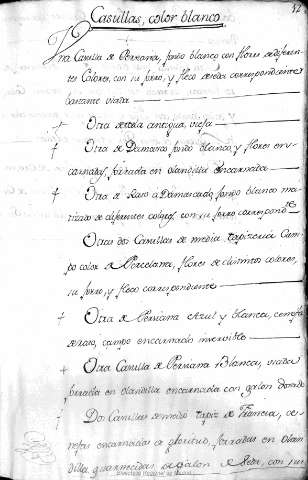 52
Casullas, color blanco
Una Casulla de Persiana, fondo blanco con flores de diferen-
tes Colores, con su forro, y fleco de seda correspondiente
bastante usada
+ Otra de tela antigua, vieja
+ Otra de Damasco fondo blanco, y flores en-
carnadas, forrada en olandilla encarnada
+ Otra de Raso Adamascado, fondo blanco ma-
tizado de diferentes colores con su forro correspond.te
Otras dos Casullas de media tapiceria Cam-
po color de Porcelana, flores de distintos colores,
su forro, y fleco correspondiente
+ Otra de Persiana Azul y blanca, cenefa
de raso, campo encarnado
+ Otra Casulla de Persiana Blanca, usada
forrada en olandilla encarnada con galon dorado
+ Dos Casullas de medio tapiz de Francia, ce-
nefas encarnadas forradas en olan-
dilla guarnecidas de galon de Seda, con sus